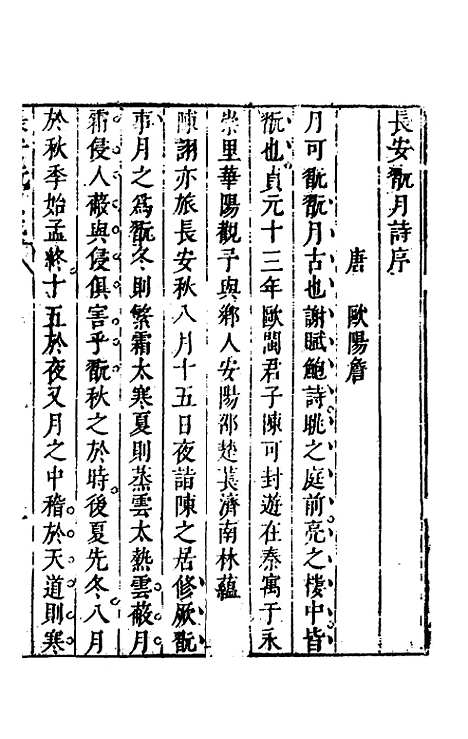 長安翫月詩序
唐　歐陽詹
月可翫翫月古也謝賦鮑詩眺之庭前亮之樓中皆
翫也貞元十三年歐閩君子陳可封遊在秦寓于永
崇里華陽觀予與鄉人安陽邵楚萇濟南林蘊
陳詡亦旅長安秋八月十五日夜詣陳之居修厥翫
事月之爲翫冬則繁霜太寒夏則蒸雲太熱雲蔽月
霜侵人蔽與侵俱害乎翫秋之於時後夏先冬八月
於秋季始孟終十五於夜又月之中稽於天道則寒